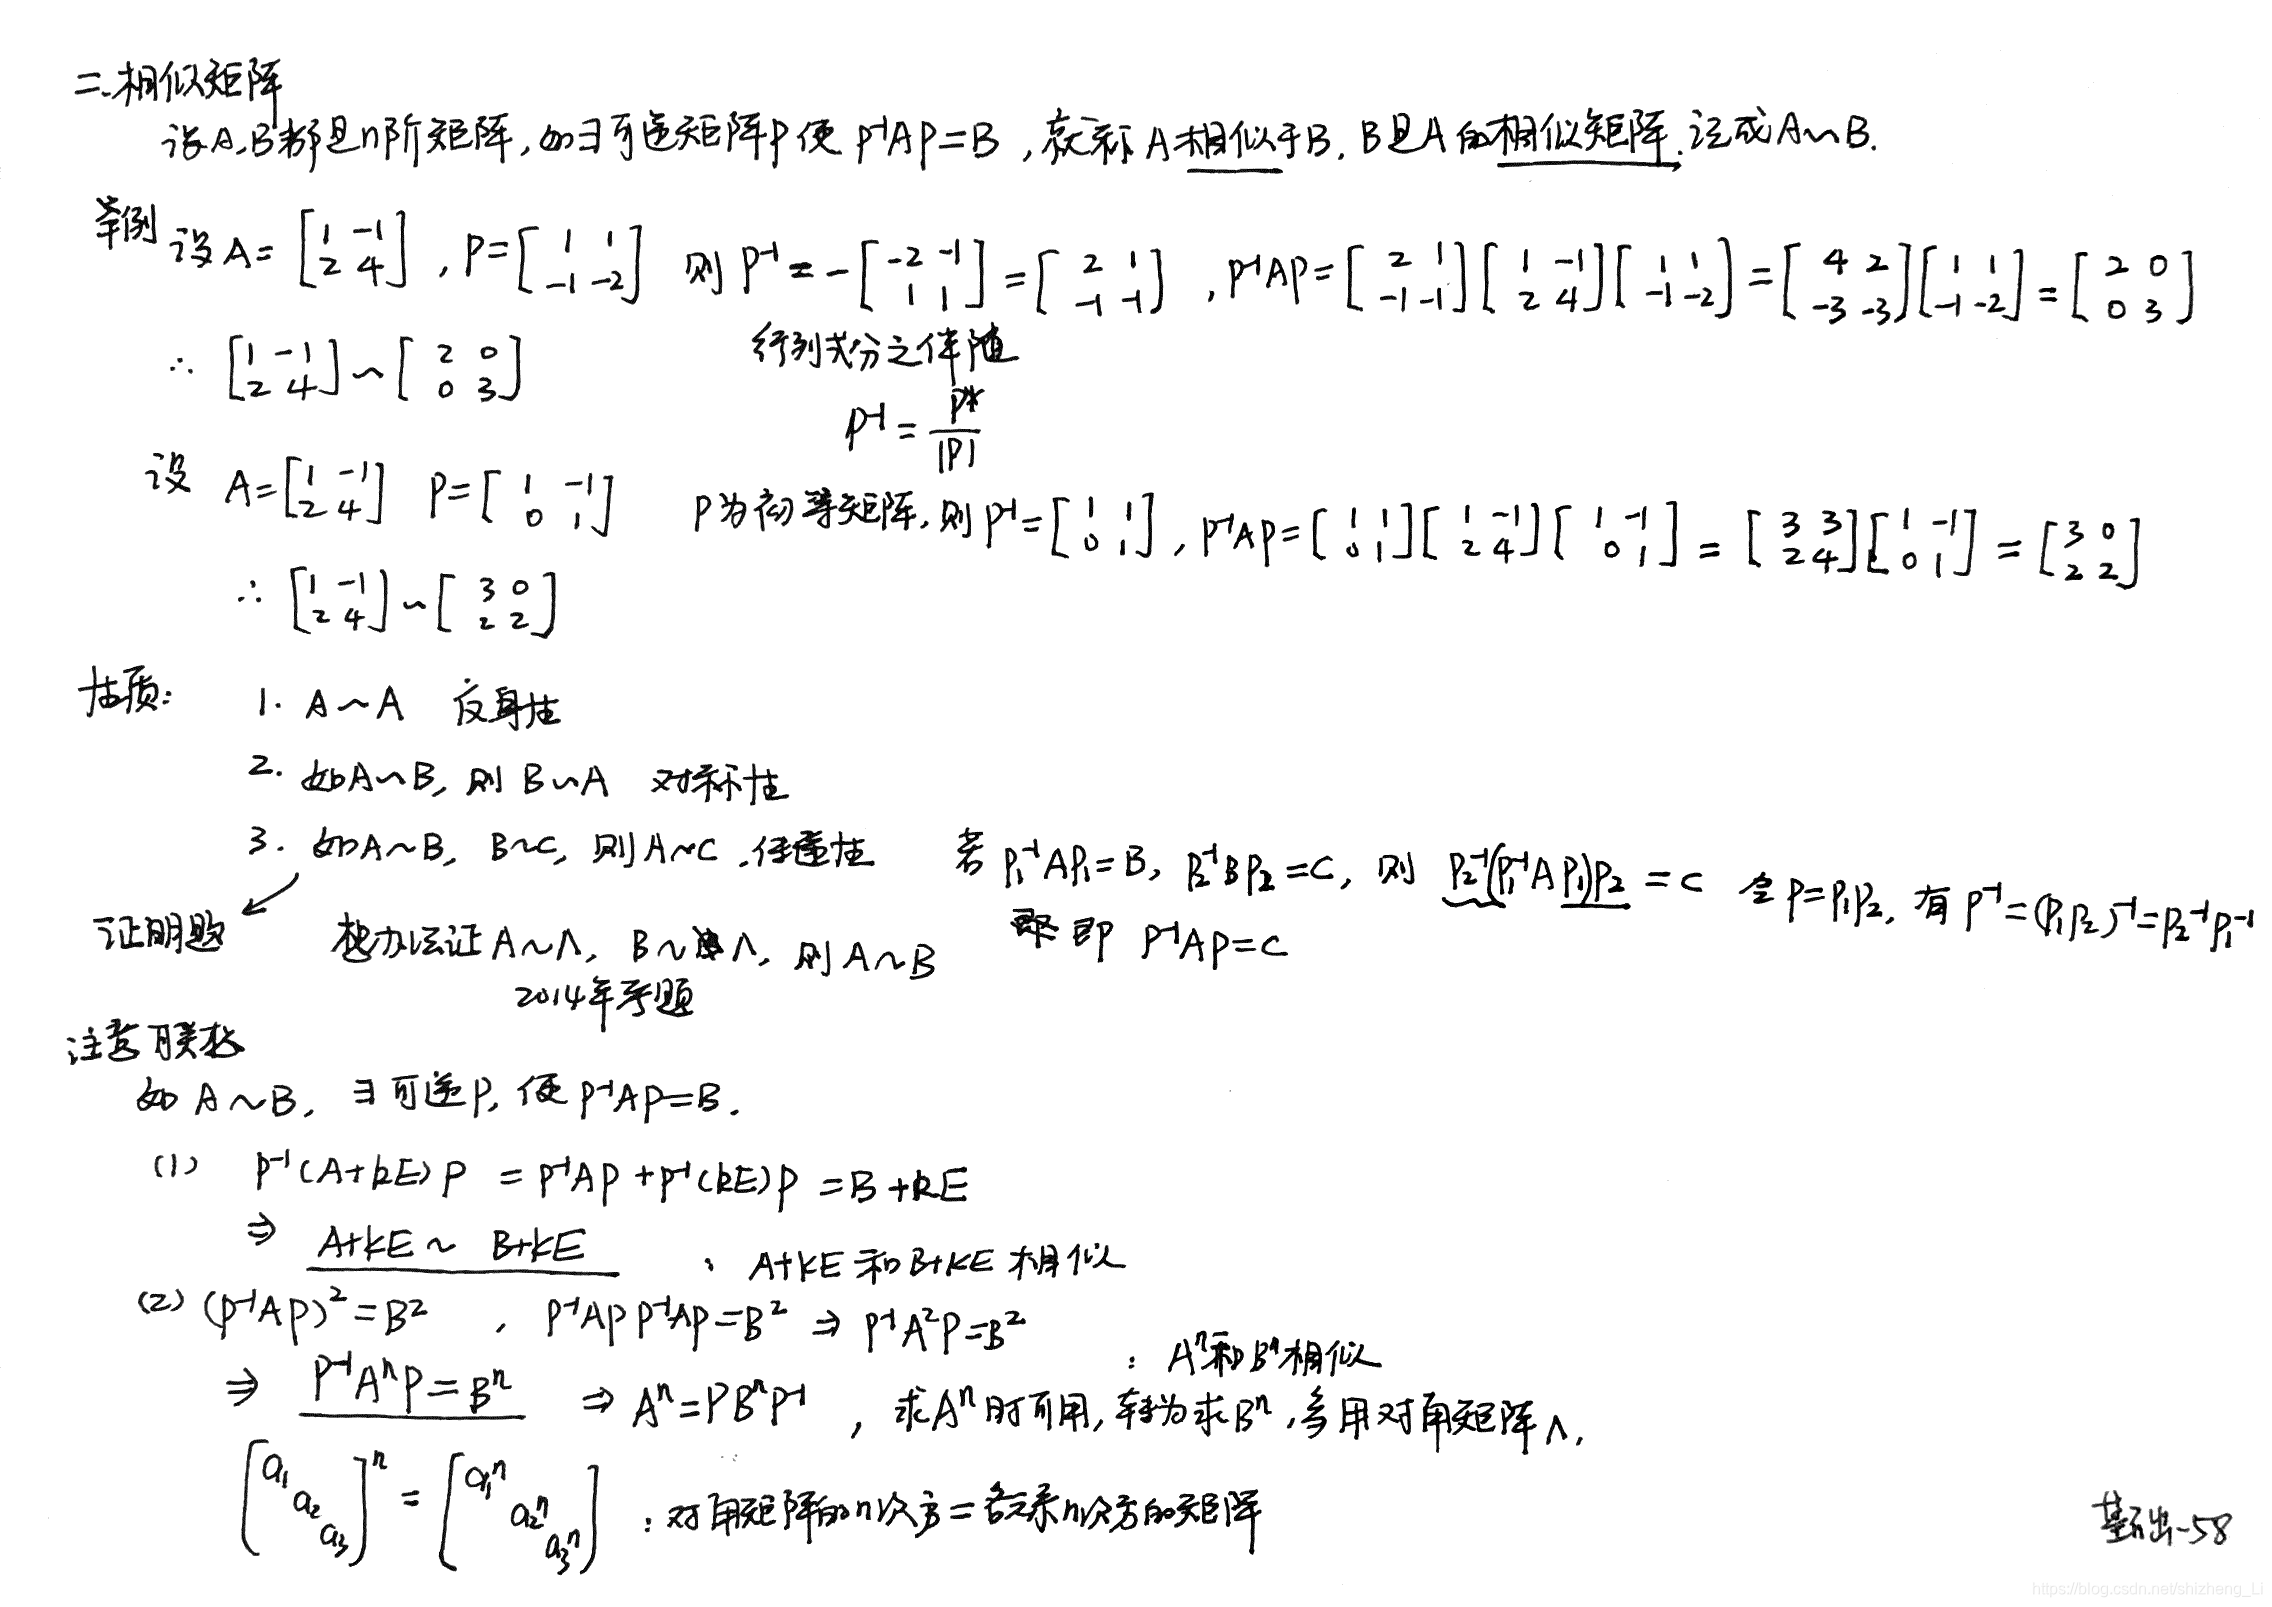 二.相似矩阵
设A,B都是n阶矩阵,如∃可逆矩阵P使 P⁻¹AP=B ,就称 A相似于B. B是A的相似矩阵.记成A∼B.
举例 设A= [1 -1; 2 4] , P= [1 1; -1 -2] 则 P⁻¹ = -[-2 -1; 1 1] = [2 1; -1 -1] , P⁻¹AP= [2 1; -1 -1][1 -1; 2 4][1 1; -1 -2] = [4 2; -3 -3][1 1; -1 -2] = [2 0; 0 3]
行列式分之伴随
∴ [1 -1; 2 4] ∼ [2 0; 0 3]
P⁻¹ = P*/|P|
设 A=[1 -1; 2 4] P=[1 -1; 0 1] P为初等矩阵,则P⁻¹=[1 1; 0 1] , P⁻¹AP= [1 1; 0 1][1 -1; 2 4][1 -1; 0 1] = [3 3; 2 4][1 -1; 0 1] = [3 0; 2 2]
∴ [1 -1; 2 4] ∼ [3 0; 2 2]
性质: 1. A∼A 反身性
2. 如A∼B, 则 B∼A 对称性
3. 如A∼B, B∼C, 则A∼C .传递性 若 P₁⁻¹AP₁=B, P₂⁻¹BP₂=C, 则 P₂⁻¹(P₁⁻¹AP₁)P₂ = C 令 P=P₁P₂, 有 P⁻¹=(P₁P₂)⁻¹=P₂⁻¹P₁⁻¹
即 P⁻¹AP=C
证明题 想办法证 A∼Λ, B∼Λ, 则 A∼B
2014年考题
注意联想
如 A∼B, ∃可逆P, 使 P⁻¹AP=B.
(1) P⁻¹(A+kE)P = P⁻¹AP+P⁻¹(kE)P =B+kE
⇒ A+kE ∼ B+kE : A+kE和B+kE 相似
(2) (P⁻¹AP)²=B² , P⁻¹APP⁻¹AP=B² ⇒ P⁻¹A²P=B²
: Aⁿ和Bⁿ相似
⇒ P⁻¹AⁿP=Bⁿ ⇒ Aⁿ=PBⁿP⁻¹ , 求Aⁿ时可用, 转为求Bⁿ,多用对角矩阵Λ.
[a₁ a₂ a₃]ⁿ = [a₁ⁿ a₂ⁿ a₃ⁿ] : 对角矩阵的n次方=各元素n次方的矩阵
基础-58
https://blog.csdn.net/shizheng_Li